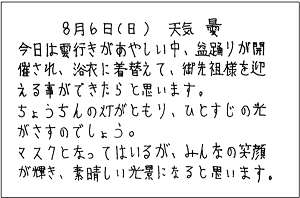 8月6日(日) 天気 曇
今日は雲行きがあやしい中、盆踊りが開
催され、浴衣に着替えて、御先祖様を迎
える事ができたらと思います。
ちょうちんの灯がともり、ひとすじの光
がさすのでしょう。
マスクとなってはいるが、みんなの笑顔
が輝き、素晴しい光景になると思います。